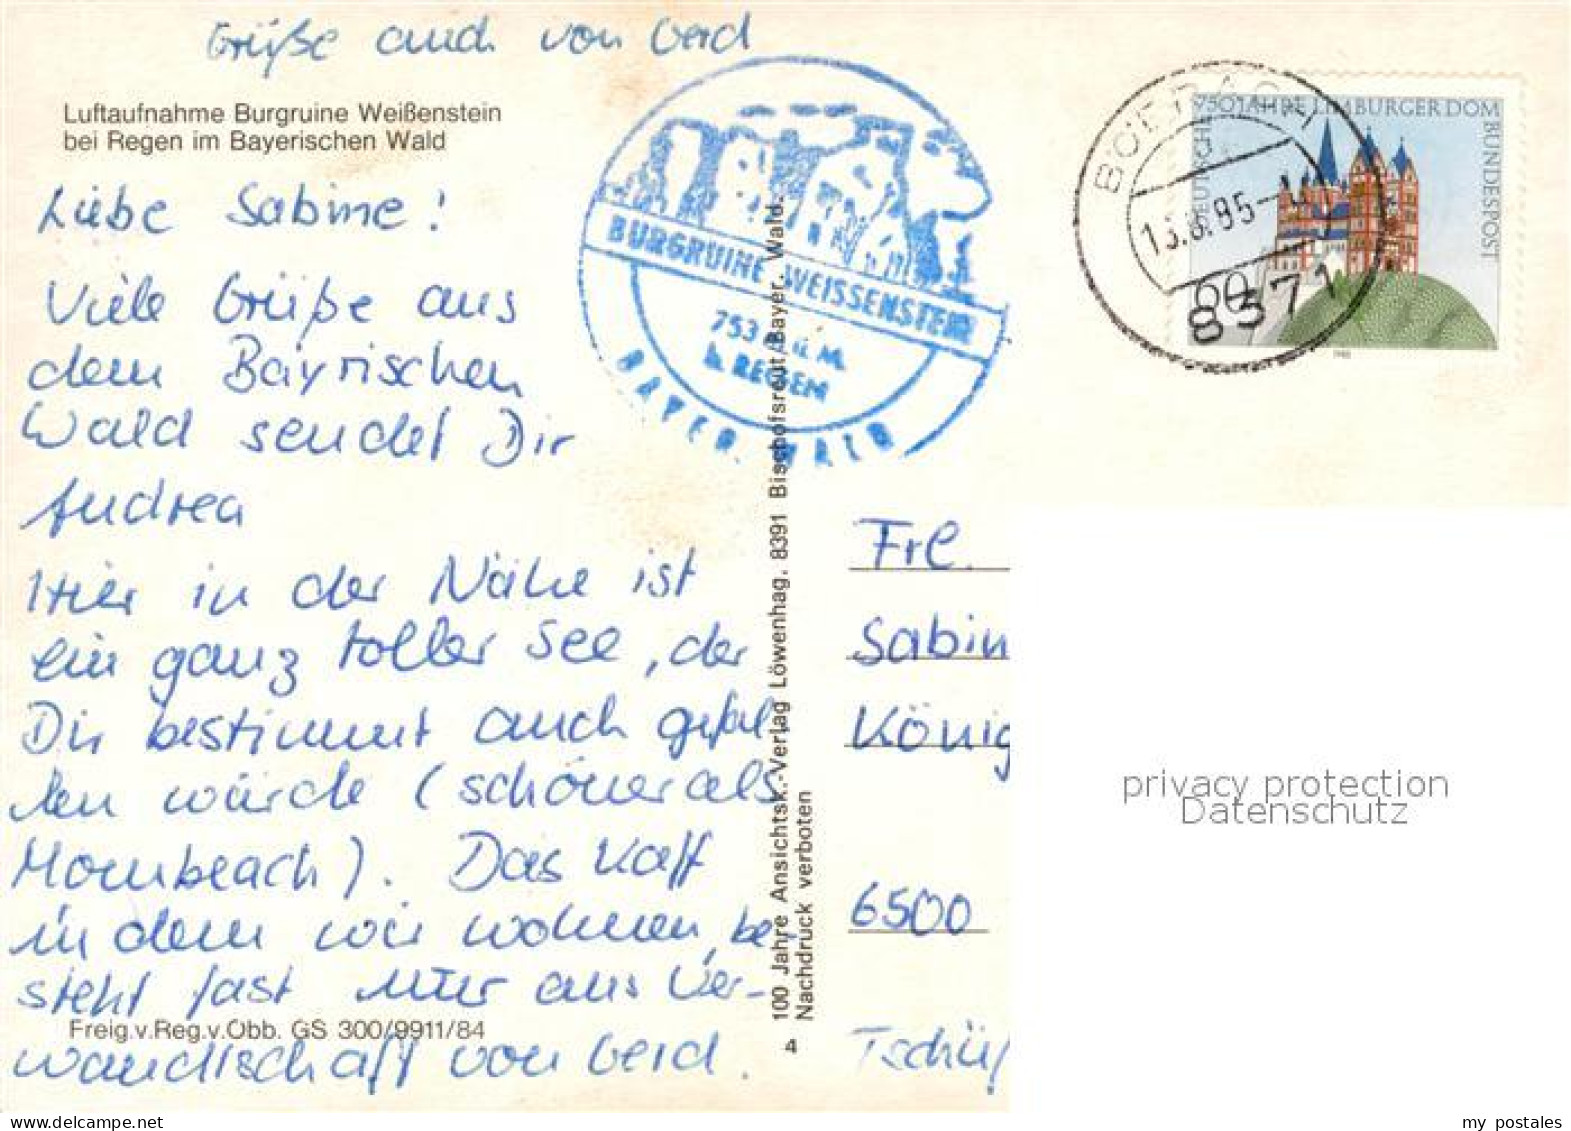 Grüße auch von Gerd
Luftaufnahme Burgruine Weißenstein
bei Regen im Bayerischen Wald
Liebe Sabine!
Viele Grüße aus
dem Bayrischen
Wald sendet Dir
Andrea
Hier in der Nähe ist
ein ganz toller See, der
Dir bestimmt auch gefal-
len würde (schöner als
Mombeach). Das Kaff
in dem wir wohnen, be-
steht fast nur aus Ver-
wandtschaft von Gerd.
Freig.v.Reg.v.Obb. GS 300/9911/84
BURGRUINE WEISSENSTEIN
753 m ü. M.
b. REGEN
BAYER. WALD
100 Jahre Ansichtsk.-Verlag Löwenhag, 8391 Bischofsreut/Bayer. Wald.
Nachdruck verboten
4
750 JAHRE LIMBURGER DOM
DEUTSCHE BUNDESPOST
80
1985
13.8.85
8371
Frl.
Sabin
König
6500
Tschüß
privacy protection
Datenschutz
my postales